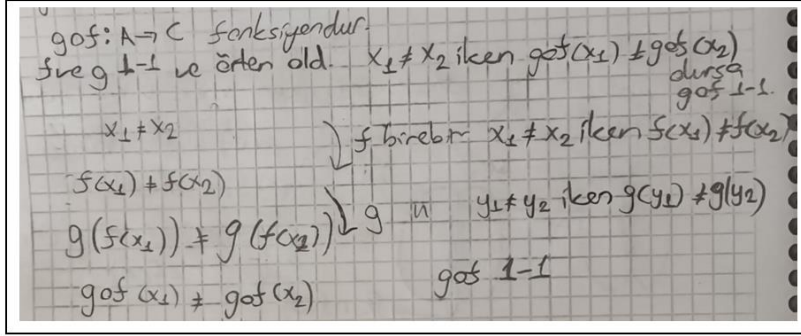 gof: A→C fonksiyondur.
f ve g 1-1 ve örten old. x₁≠x₂ iken gof(x₁)≠gof(x₂)
dursa
gof 1-1.
x₁≠x₂
f birebir x₁≠x₂ iken f(x₁)≠f(x₂)
f(x₁)≠f(x₂)
g " y₁≠y₂ iken g(y₁)≠g(y₂)
g(f(x₁))≠g(f(x₂))
gof(x₁)≠gof(x₂) gof 1-1